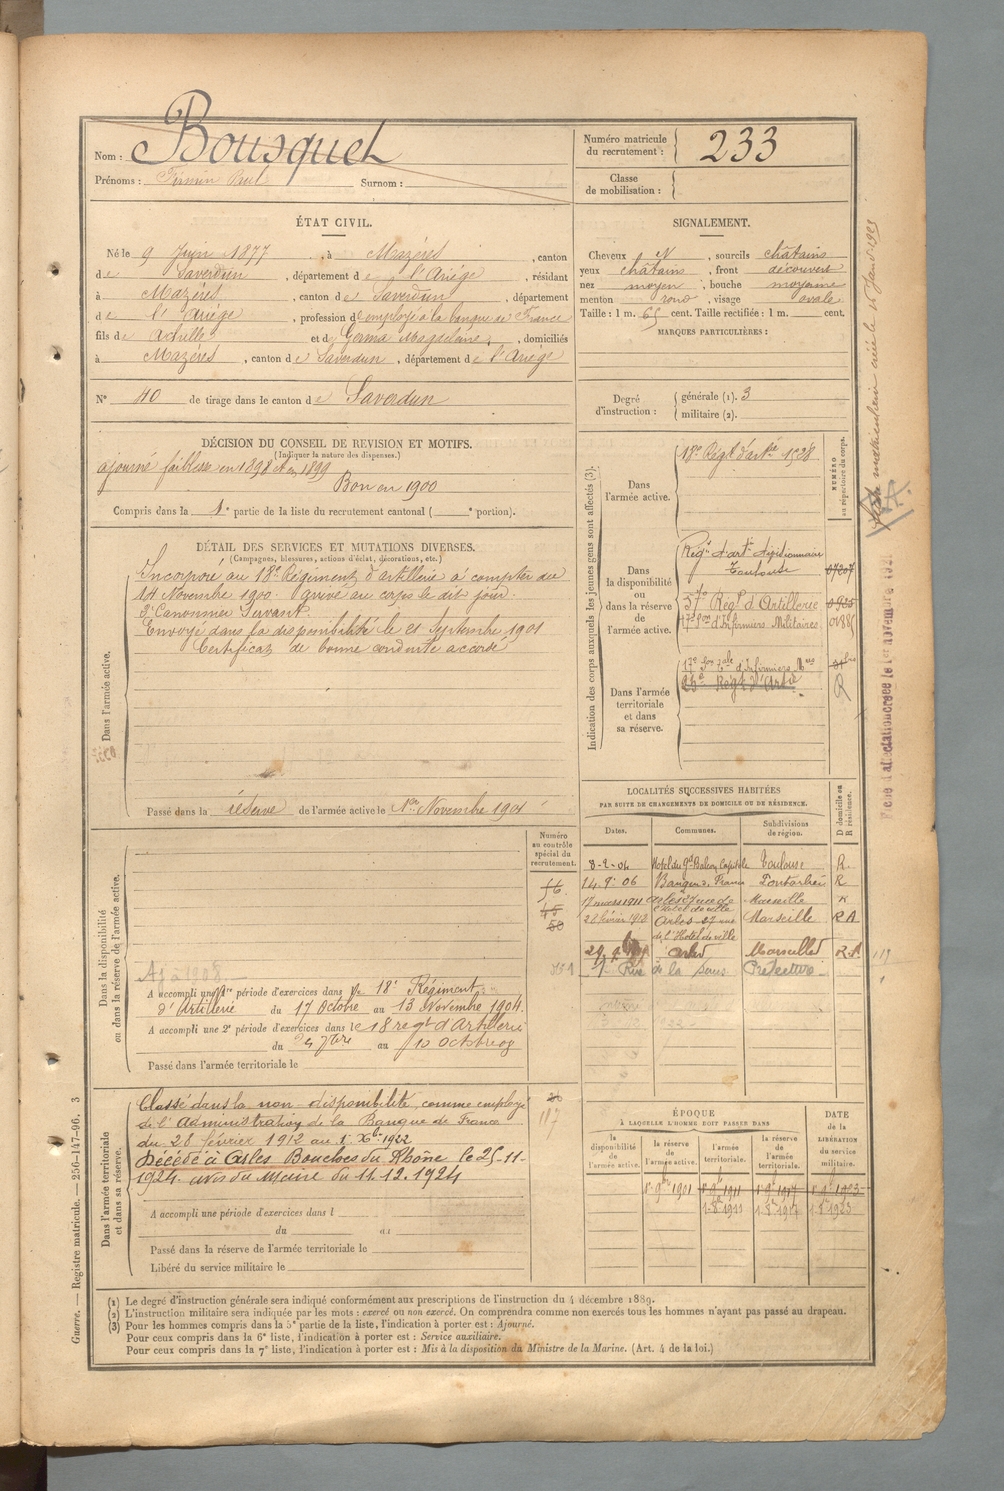 Nom : Bousquet
Prénoms : Firmin Paul Surnom :
Numéro matricule
du recrutement : 233
Classe
de mobilisation :
ÉTAT CIVIL.
Né le 9 Juin 1877 , à Mazères , canton
de Saverdun , département de l'Ariège , résidant
à Mazères , canton de Saverdun , département
de l'Ariège , profession d'employé à la banque de France
fils de Achille et de Germa Magdelaine , domiciliés
à Mazères , canton de Saverdun , département de l'Ariège
N° 40 de tirage dans le canton de Saverdun
SIGNALEMENT.
Cheveux N , sourcils châtains
yeux châtains , front découvert
nez moyen , bouche moyenne
menton rond , visage ovale
Taille : 1 m. 65 cent. Taille rectifiée : 1 m. cent.
MARQUES PARTICULIÈRES :
Degré
d'instruction :
générale (1). 3
militaire (2).
DÉCISION DU CONSEIL DE REVISION ET MOTIFS.
(Indiquer la nature des dispenses.)
ajourné faiblesse en 1898 & en 1899
Bon en 1900
Compris dans la 1e partie de la liste du recrutement cantonal ( e portion).
DÉTAIL DES SERVICES ET MUTATIONS DIVERSES.
(Campagnes, blessures, actions d'éclat, décorations, etc.)
Dans l'armée active.
Incorporé au 18e Régiment d'artillerie à compter du
14 Novembre 1900. Arrivé au corps le dit jour.
2e Canonnier Servant
Envoyé dans la disponibilité le 21 Septembre 1901
Certificat de bonne conduite accordé
Passé dans la réserve de l'armée active le 1er Novembre 1901
Indication des corps auxquels les jeunes gens sont affectés (3).
NUMÉRO
au répertoire du corps.
Dans
l'armée active.
18e Régt d'artie 1528
Dans
la disponibilité
ou
dans la réserve
de
l'armée active.
Régt d'artie divisionnaire
Toulouse
57e Régt d'Artillerie
17e Son d'Infirmiers Militaires
Dans l'armée
territoriale
et dans
sa réserve.
17e Son Tale d'Infirmiers
Régt d'Artie
LOCALITÉS SUCCESSIVES HABITÉES
PAR SUITE DE CHANGEMENTS DE DOMICILE OU DE RÉSIDENCE.
Dates. Communes. Subdivisions
de région. D domicile ou
R résidence.
8-2-04 Hotel du Gd Balcon Capitole Toulouse R
14-9-06 Banque de France R
17 mars 1911 Arles 27 rue de
l'hotel de ville Marseille R
28 février 1912 Arles 27 rue
de l'Hotel de ville Marseille R A
Arles Marseille R.A
Rue de la
Dans la disponibilité
ou dans la réserve de l'armée active.
Numéro
au contrôle
spécial du
recrutement.
Aj à 1908
A accompli une 1re période d'exercices dans le 18e Régiment
d'Artillerie du 17 Octobre au 13 Novembre 1904.
A accompli une 2e période d'exercices dans le 18 regt d'Artillerie
du 24 7bre au 10 octobre 09
Passé dans l'armée territoriale le
Dans l'armée territoriale
et dans sa réserve.
Classé dans la non-disponibilité, comme employé
de l'administration de la Banque de France
du 28 février 1912 au 1er Xbre 1922
Décédé à Arles Bouches du Rhône le 25-11-
1924. avis du Maire du 11.12.1924
A accompli une période d'exercices dans l
du au
Passé dans la réserve de l'armée territoriale le
Libéré du service militaire le
ÉPOQUE
À LAQUELLE L'HOMME DOIT PASSER DANS
la
disponibilité
de
l'armée active.
la réserve
de
l'armée active.
l'armée
territoriale.
la réserve
de l'armée
territoriale.
DATE
de la
LIBÉRATION
du service
militaire.
(1) Le degré d'instruction générale sera indiqué conformément aux prescriptions de l'instruction du 4 décembre 1889.
(2) L'instruction militaire sera indiquée par les mots : exercé ou non exercé. On comprendra comme non exercés tous les hommes n'ayant pas passé au drapeau.
(3) Pour les hommes compris dans la 5e partie de la liste, l'indication à porter est : Ajourné.
Pour ceux compris dans la 6e liste, l'indication à porter est : Service auxiliaire.
Pour ceux compris dans la 7e liste, l'indication à porter est : Mis à la disposition du Ministre de la Marine. (Art. 4 de la loi.)
Guerre. — Registre matricule. — 256-147-96. 3
Fiche d'affectation créée le 1er novembre 1921